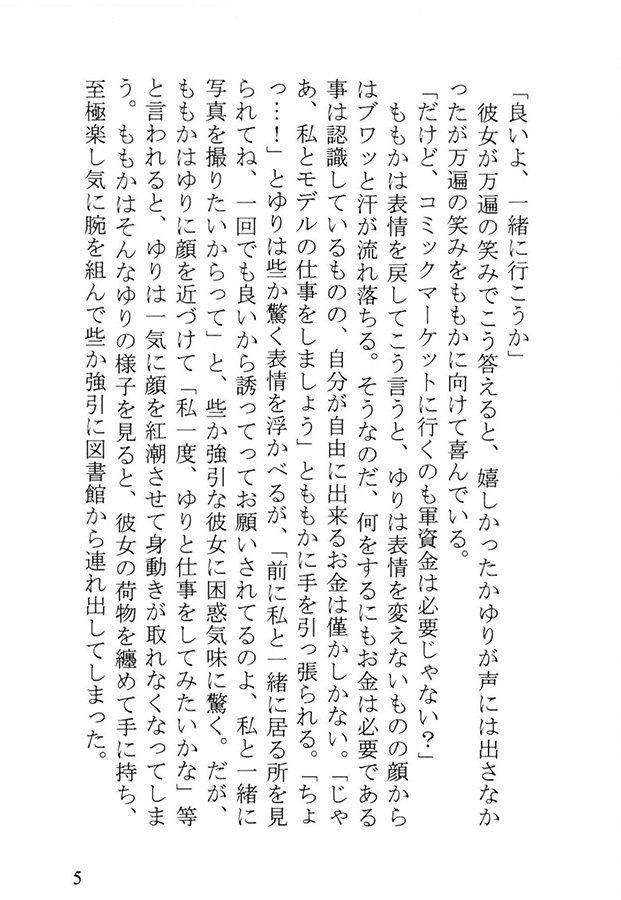 「良いよ、一緒に行こうか」
　彼女が万遍の笑みでこう答えると、嬉しかったかゆりが声には出さなか
ったが万遍の笑みをももかに向けて喜んでいる。
「だけど、コミックマーケットに行くのも軍資金は必要じゃない？」
　ももかは表情を戻してこう言うと、ゆりは表情を変えないものの顔から
はブワッと汗が流れ落ちる。そうなのだ、何をするにもお金は必要である
事は認識しているものの、自分が自由に出来るお金は僅かしかない。「じゃ
あ、私とモデルの仕事をしましょう」とももかに手を引っ張られる。「ちょ
っ…！」とゆりは些か驚く表情を浮かべるが、「前に私と一緒に居る所を見
られてね、一回でも良いから誘ってってお願いされてるのよ、私と一緒に
写真を撮りたいからって」と、些か強引な彼女に困惑気味に驚く。だが、
ももかはゆりに顔を近づけて「私一度、ゆりと仕事をしてみたいかな」等
と言われると、ゆりは一気に顔を紅潮させて身動きが取れなくなってしま
う。ももかはそんなゆりの様子を見ると、彼女の荷物を纏めて手に持ち、
至極楽し気に腕を組んで些か強引に図書館から連れ出してしまった。
5